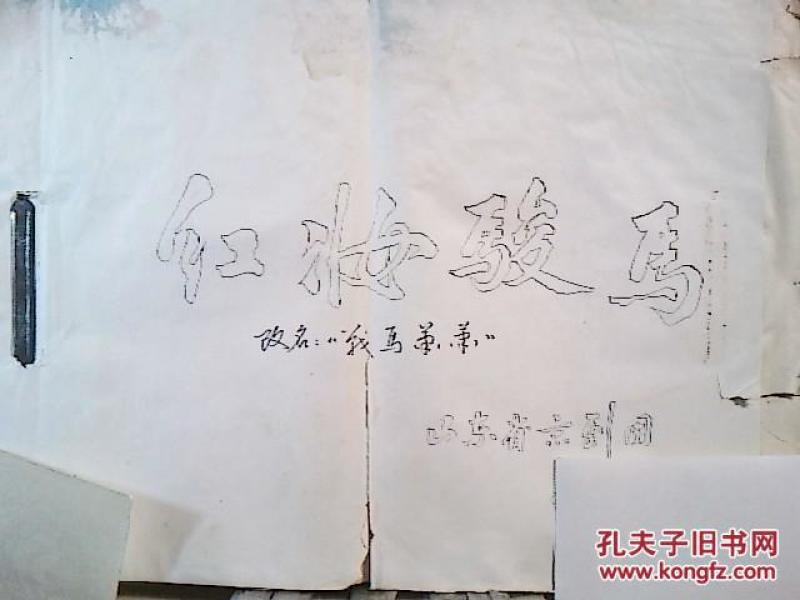 红妆骏馬
改名："战马萧萧"
山东省京剧团
孔夫子旧书网
www.kongfz.com